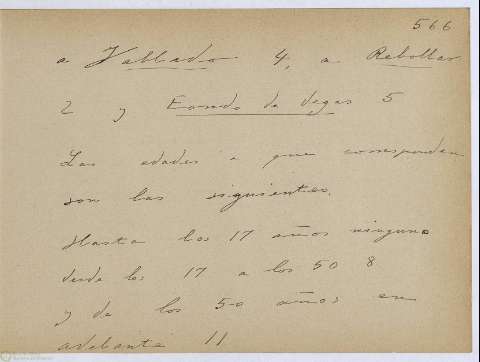 566
a Vallado 4, a Rebollar
2 y Corredo de Vegas 5
Las edades a que corresponden
son las siguientes.
Hasta los 17 años ninguno
desde los 17 a los 50 8
y de los 50 años en
adelante 11